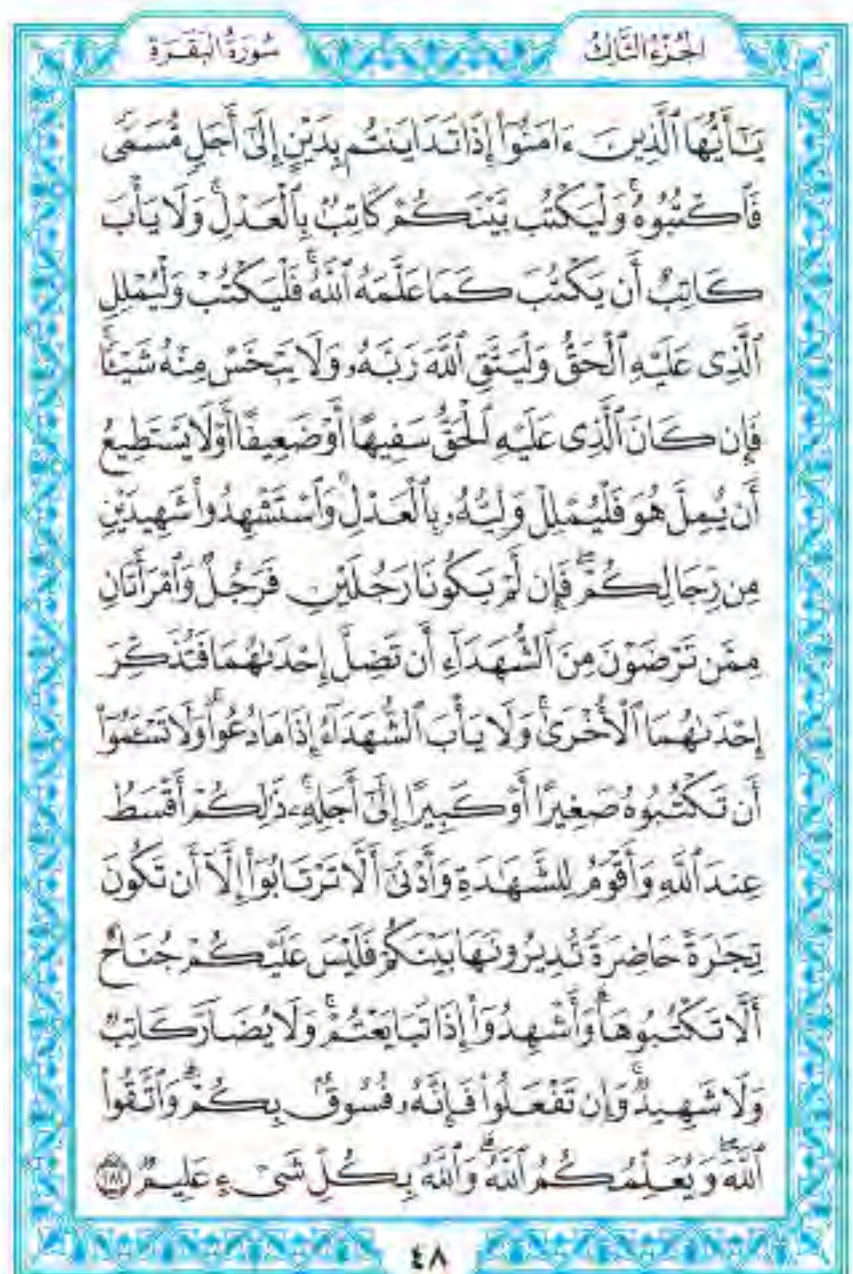 الجُزْءُ الثَّالِثُ
سُورَةُ البَقَرَةِ
يَٰٓأَيُّهَا ٱلَّذِينَ ءَامَنُوٓا۟ إِذَا تَدَايَنتُم بِدَيْنٍ إِلَىٰٓ أَجَلٍ مُّسَمًّى
فَٱكْتُبُوهُ ۚ وَلْيَكْتُب بَّيْنَكُمْ كَاتِبٌۢ بِٱلْعَدْلِ ۚ وَلَا يَأْبَ
كَاتِبٌ أَن يَكْتُبَ كَمَا عَلَّمَهُ ٱللَّهُ ۚ فَلْيَكْتُبْ وَلْيُمْلِلِ
ٱلَّذِى عَلَيْهِ ٱلْحَقُّ وَلْيَتَّقِ ٱللَّهَ رَبَّهُۥ وَلَا يَبْخَسْ مِنْهُ شَيْـًٔا ۚ
فَإِن كَانَ ٱلَّذِى عَلَيْهِ ٱلْحَقُّ سَفِيهًا أَوْ ضَعِيفًا أَوْ لَا يَسْتَطِيعُ
أَن يُمِلَّ هُوَ فَلْيُمْلِلْ وَلِيُّهُۥ بِٱلْعَدْلِ ۚ وَٱسْتَشْهِدُوا۟ شَهِيدَيْنِ
مِن رِّجَالِكُمْ ۖ فَإِن لَّمْ يَكُونَا رَجُلَيْنِ فَرَجُلٌ وَٱمْرَأَتَانِ
مِمَّن تَرْضَوْنَ مِنَ ٱلشُّهَدَآءِ أَن تَضِلَّ إِحْدَىٰهُمَا فَتُذَكِّرَ
إِحْدَىٰهُمَا ٱلْأُخْرَىٰ ۚ وَلَا يَأْبَ ٱلشُّهَدَآءُ إِذَا مَا دُعُوا۟ ۚ وَلَا تَسْـَٔمُوٓا۟
أَن تَكْتُبُوهُ صَغِيرًا أَوْ كَبِيرًا إِلَىٰٓ أَجَلِهِۦ ۚ ذَٰلِكُمْ أَقْسَطُ
عِندَ ٱللَّهِ وَأَقْوَمُ لِلشَّهَٰدَةِ وَأَدْنَىٰٓ أَلَّا تَرْتَابُوٓا۟ ۖ إِلَّآ أَن تَكُونَ
تِجَٰرَةً حَاضِرَةً تُدِيرُونَهَا بَيْنَكُمْ فَلَيْسَ عَلَيْكُمْ جُنَاحٌ
أَلَّا تَكْتُبُوهَا ۗ وَأَشْهِدُوٓا۟ إِذَا تَبَايَعْتُمْ ۚ وَلَا يُضَآرَّ كَاتِبٌ
وَلَا شَهِيدٌ ۚ وَإِن تَفْعَلُوا۟ فَإِنَّهُۥ فُسُوقٌۢ بِكُمْ ۗ وَٱتَّقُوا۟
ٱللَّهَ ۖ وَيُعَلِّمُكُمُ ٱللَّهُ ۗ وَٱللَّهُ بِكُلِّ شَىْءٍ عَلِيمٌ
٤٨